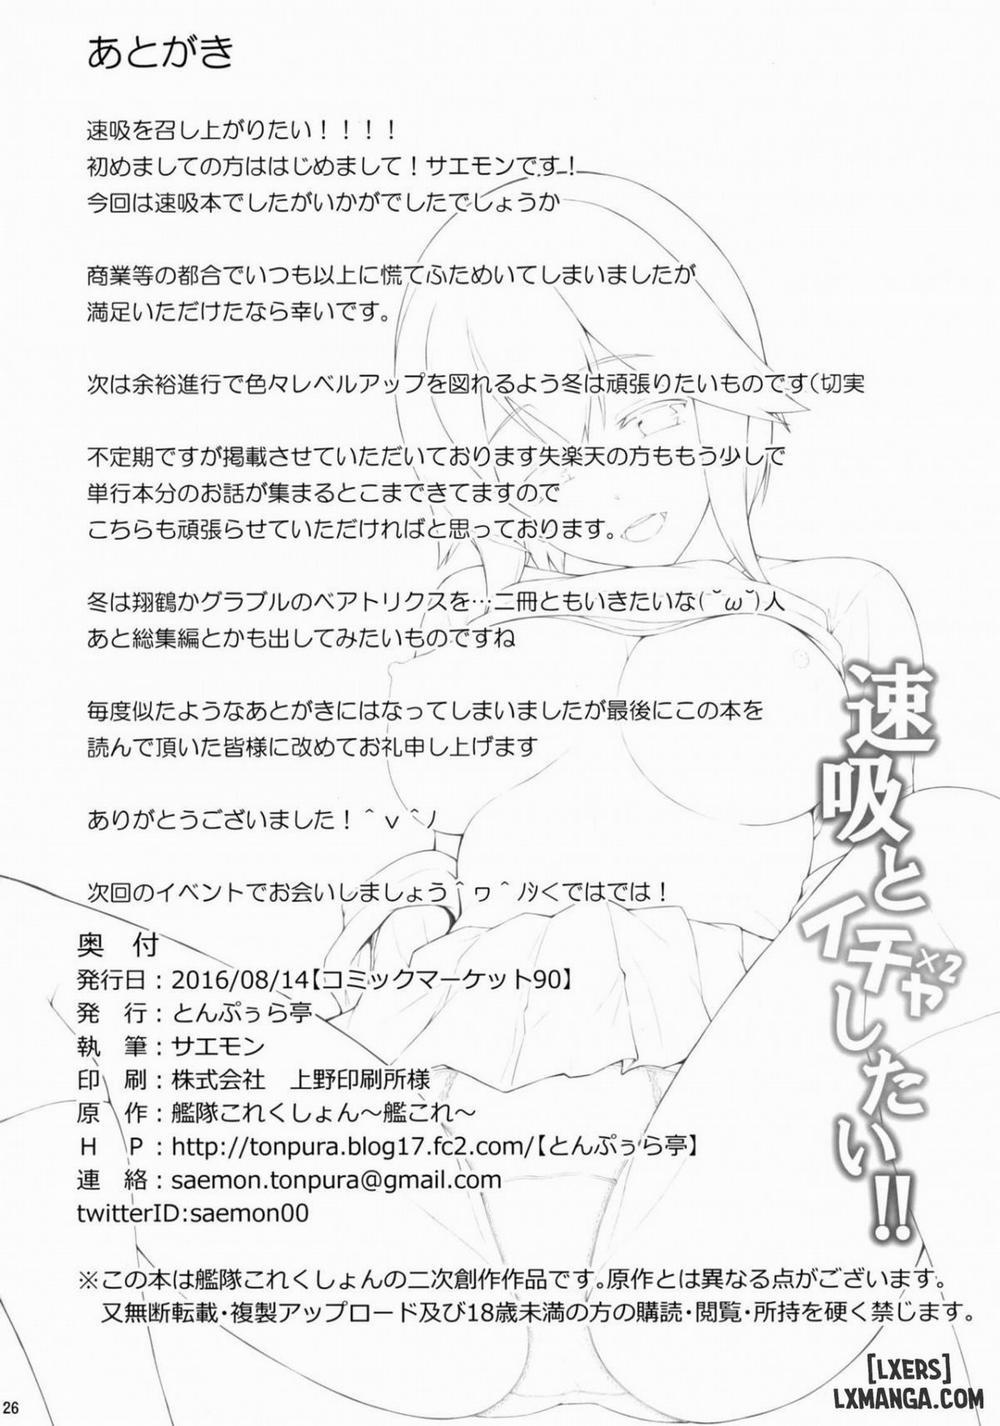 あとがき
速吸を召し上がりたい！！！！
初めましての方ははじめまして！サエモンです！
今回は速吸本でしたがいかがでしたでしょうか
商業等の都合でいつも以上に慌てふためいてしまいましたが
満足いただけたなら幸いです。
次は余裕進行で色々レベルアップを図れるよう冬は頑張りたいものです(切実
不定期ですが掲載させていただいております失楽天の方ももう少しで
単行本分のお話が集まるとこまできてますので
こちらも頑張らせていただければと思っております。
冬は翔鶴かグラブルのベアトリクスを…二冊ともいきたいな(˘ω˘)人
あと総集編とかも出してみたいものですね
毎度似たようなあとがきにはなってしまいましたが最後にこの本を
読んで頂いた皆様に改めてお礼申し上げます
ありがとうございました！＾ｖ＾ﾉ
次回のイベントでお会いしましょう＾ヮ＾ﾉｼくではでは！
奥　付
発行日：2016/08/14【コミックマーケット90】
発　行：とんぷぅら亭
執　筆：サエモン
印　刷：株式会社　上野印刷所様
原　作：艦隊これくしょん～艦これ～
Ｈ　Ｐ：http://tonpura.blog17.fc2.com/【とんぷぅら亭】
連　絡：saemon.tonpura@gmail.com
twitterID:saemon00
※この本は艦隊これくしょんの二次創作作品です。原作とは異なる点がございます。
又無断転載・複製アップロード及び18歳未満の方の購読・閲覧・所持を硬く禁じます。
速吸とイチャ×2したい!!
26
[LXERS]
LXMANGA.COM